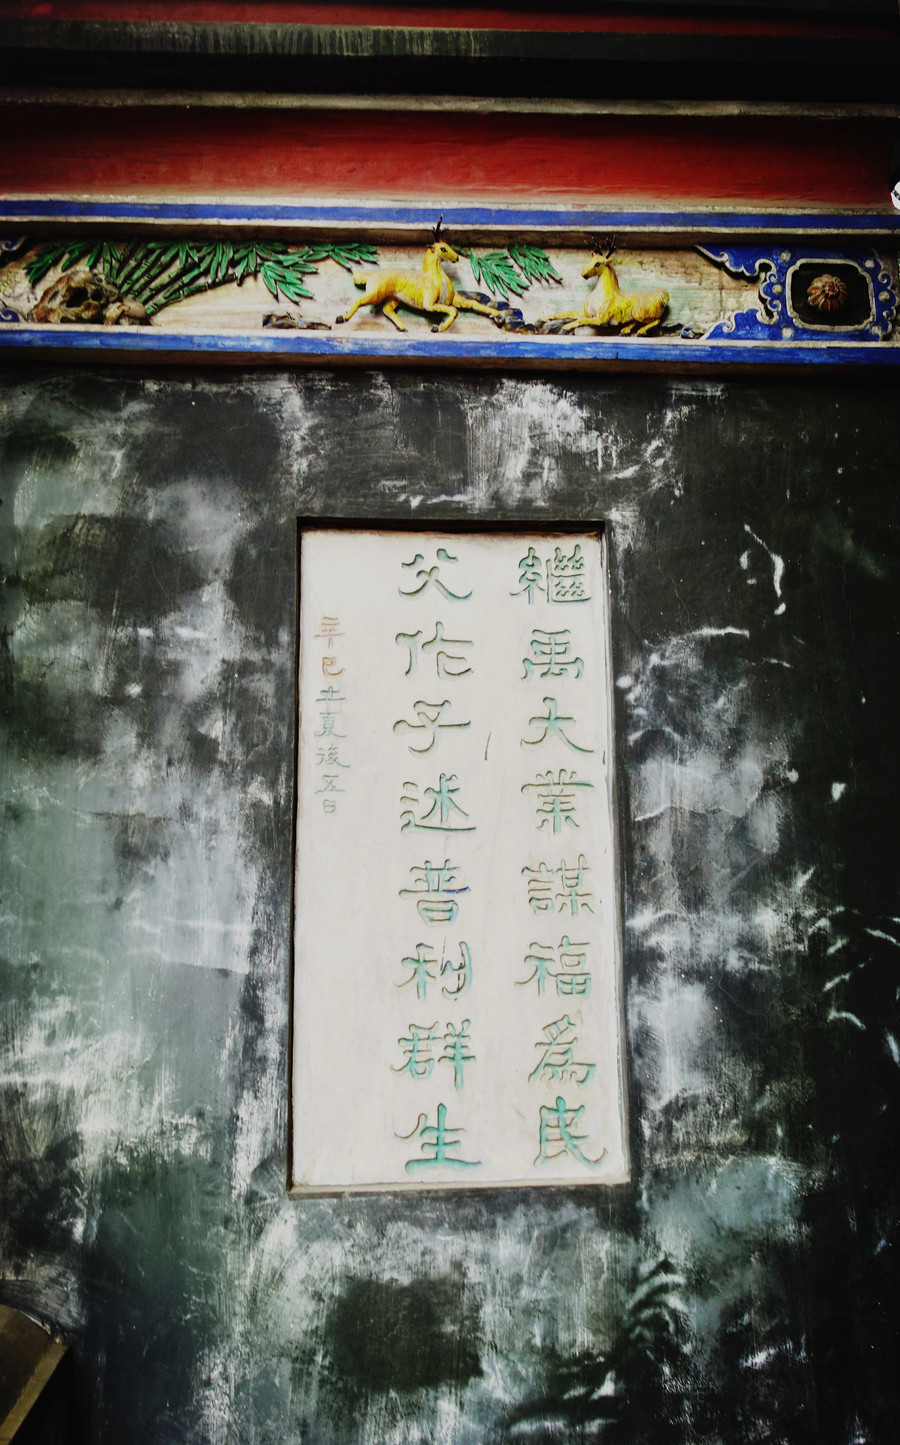 繼禹大業謀福為民
父作子述普利群生
辛巳立夏後五日